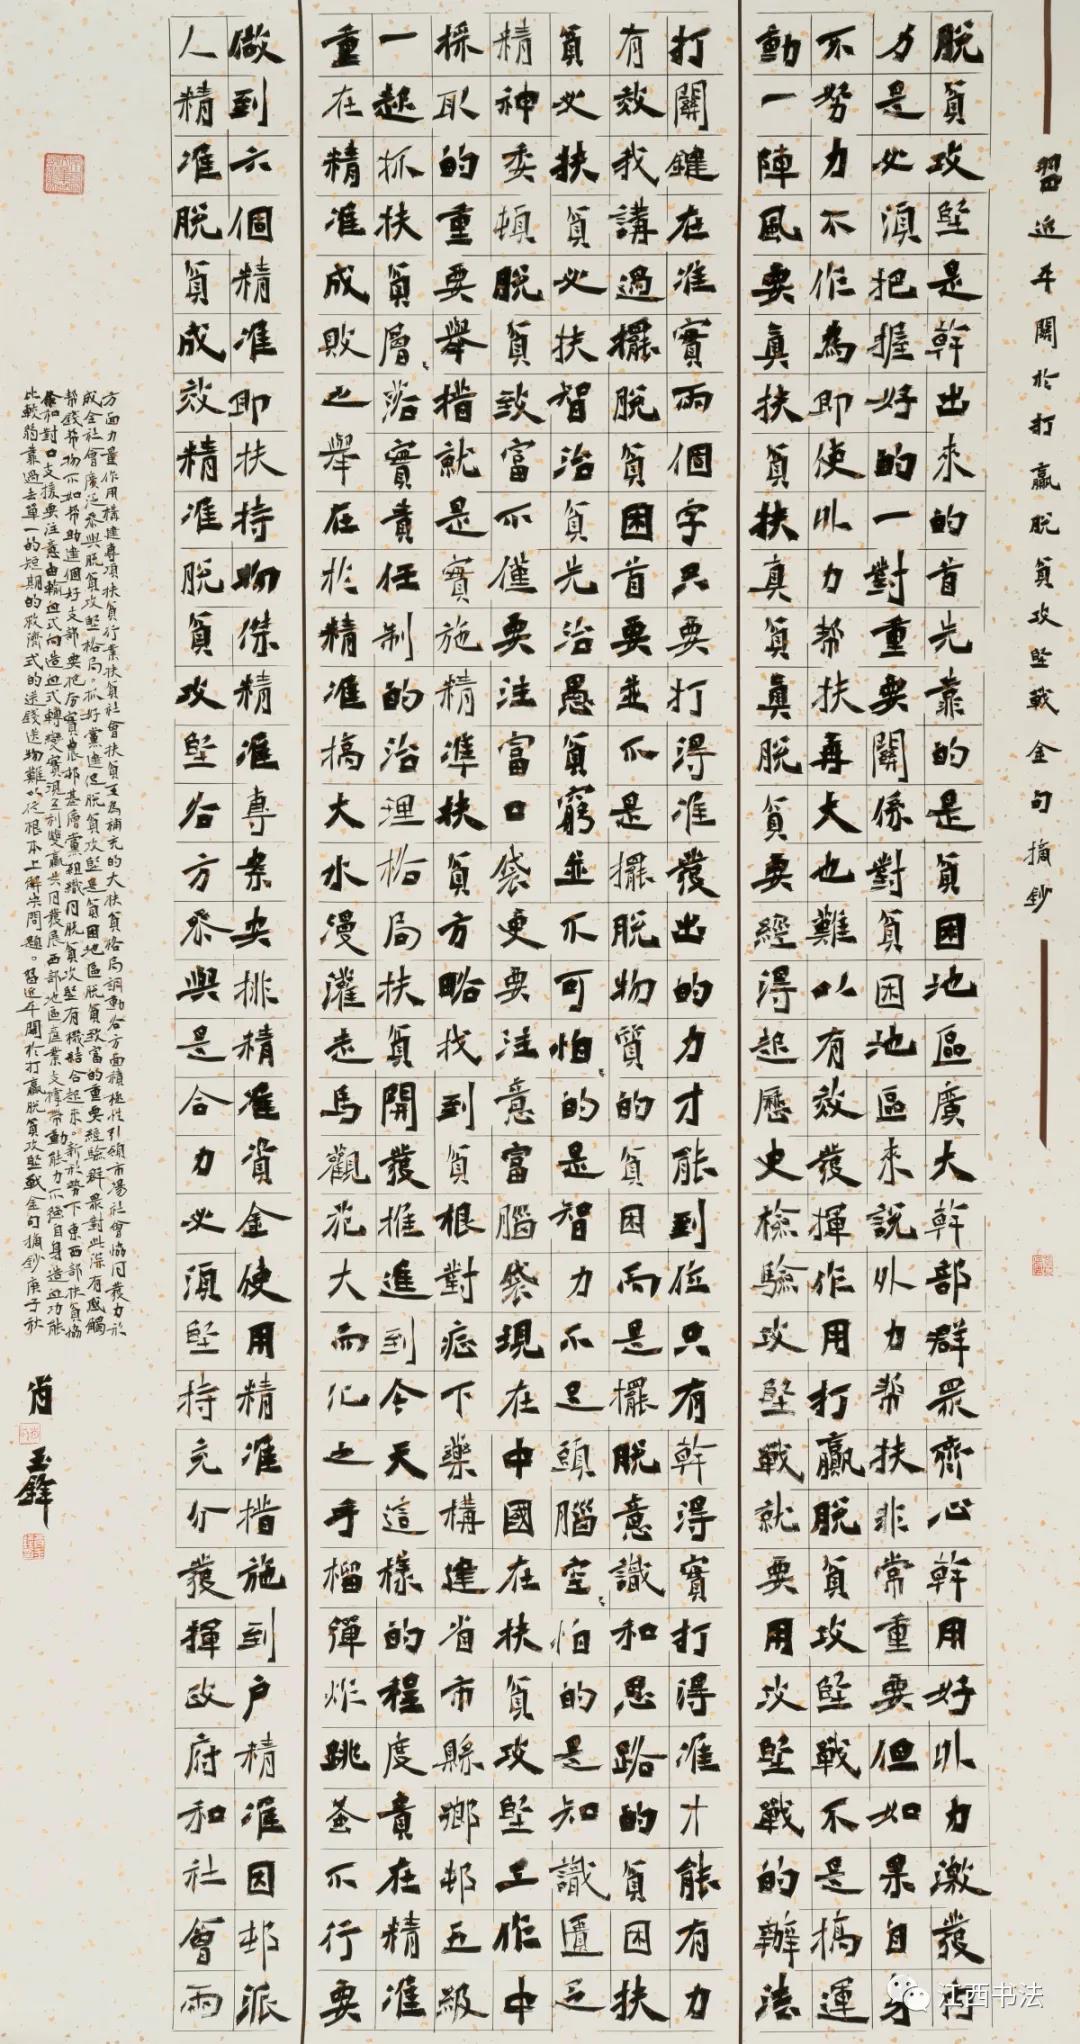 習近平關於打贏脫貧攻堅戰金句摘鈔
脫貧攻堅是幹出來的首先靠的是貧困地區廣大幹部群眾齊心幹用好外力激發內
力是必須把握好的一對重要關係對貧困地區來說外力幫扶非常重要但如果自身
不努力不作為即使外力幫扶再大也難以有效發揮作用打贏脫貧攻堅戰不是搞運
動一陣風要真扶貧扶真貧真脫貧要經得起歷史檢驗攻堅戰就要用攻堅戰的辦法
打關鍵在准實兩個字只要打得准發出的力才能到位只有幹得實打得准才能有力
有效我講過擺脫貧困首要並不是擺脫物質的貧困而是擺脫意識和思路的貧困扶
貧必扶貧必扶智治貧先治愚貧窮並不可怕的是智力不足頭腦空怕的是知識匱乏
精神委頓脫貧致富不僅要注富口袋更要注意富腦袋現在中國在扶貧攻堅工作中
採取的重要舉措就是實施精準扶貧方略找到貧根對症下藥構建省市縣鄉村五級
一起抓扶貧層層落實責任制的治理格局扶貧開發推進到今天這樣的程度貴在精准
重在精准成敗之舉在於精准搞大水漫灌走馬觀花大而化之手榴彈炸跳蚤不行要
做到六個精准即扶持物傑精准專案央排精准資金使用精准措施到户精准因村派
人精准脫貧成效精准脫貧攻堅各方參與是合力必須堅持充分發揮政府和社會兩
方面力量作用構建專項扶貧行業扶貧社會扶貧互為補充的大扶貧格局調動各方面積極性引領市場社會協同發力形
成全社會廣泛參與脫貧攻堅格局。抓好黨建促脫貧攻堅是貧困地區脫貧致富的重要經驗群眾對此深有感觸
幫錢幫物不如幫助建個好支部要把夯實農村基層黨組織同脫貧攻堅有機結合起來。新形勢下東西部扶貧協
作和對口支援要注意由輸血式向造血式轉變實現互利雙贏共同發展西部地區產業支撐帶動能力不強自身造血功能
比較弱靠過去單一的短期的救濟式的送錢送物難以從根本上解決問題。習近平關於打贏脫貧攻堅戰金句摘鈔庚子秋
肖玉鋒
江西书法